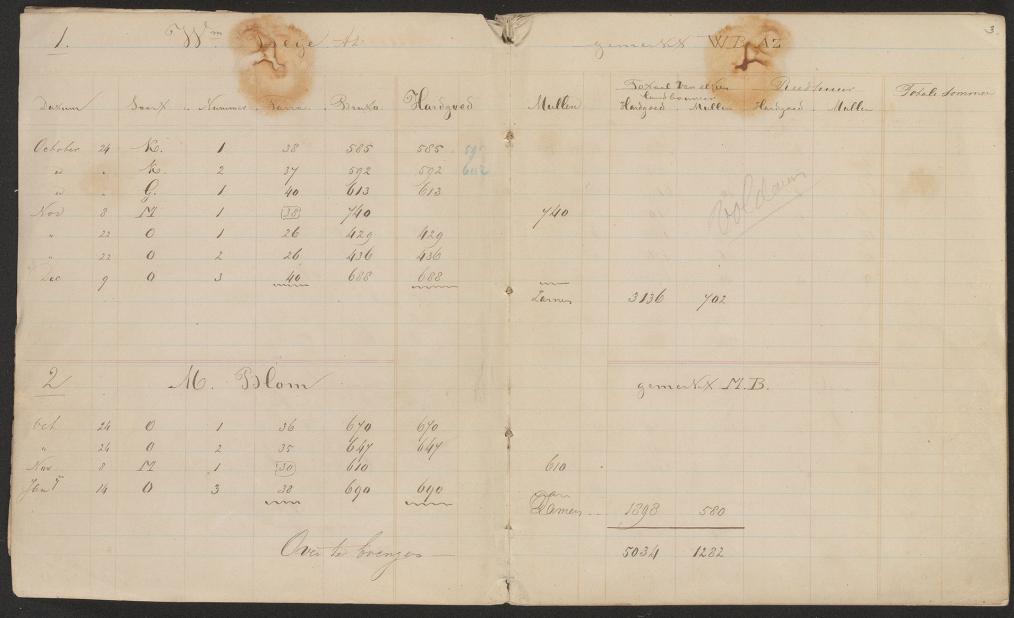 1. Wm Bege Az. gemerkt W.B. Az 3.
Datum Soort Nummer Tarra Bruto Hardgoed Mullen Totaal van elken landbouwer Hardgoed Mullen Hardgoed Mullen Totale Sommen
October 24 K. 1 38 585 585 595
" " K. 2 37 592 592 602
" " G. 1 40 613 613
Nov 8 M 1 38 740 740
" 22 O 1 26 429 429
" 22 O 2 26 436 436
Dec 9 O 3 40 688 688
Zamen 3136 702
voldaan
2 M. Blom gemerkt M.B.
Oct 24 O 1 36 670 670
" 24 O 2 35 647 647
Nov 8 M 1 30 610 610
Jany 14 O 3 38 690 690
Zamen 1898 580
Over te brengen 5034 1282